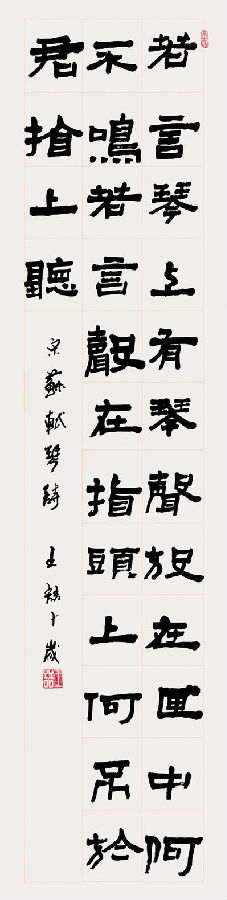 若言琴上有琴聲放在匣中何
不鳴若言聲在指頭上何不於
君指上聽
宋蘇軾琴詩 王 十歲